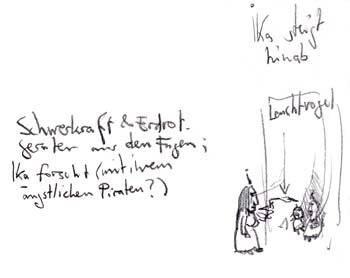 Ika steigt
hinab
Leuchtvogel
Schwerkraft & Erdrot.
geraten aus den Fugen;
Ika forscht (mit ihrem
ängstlichen Piraten?)